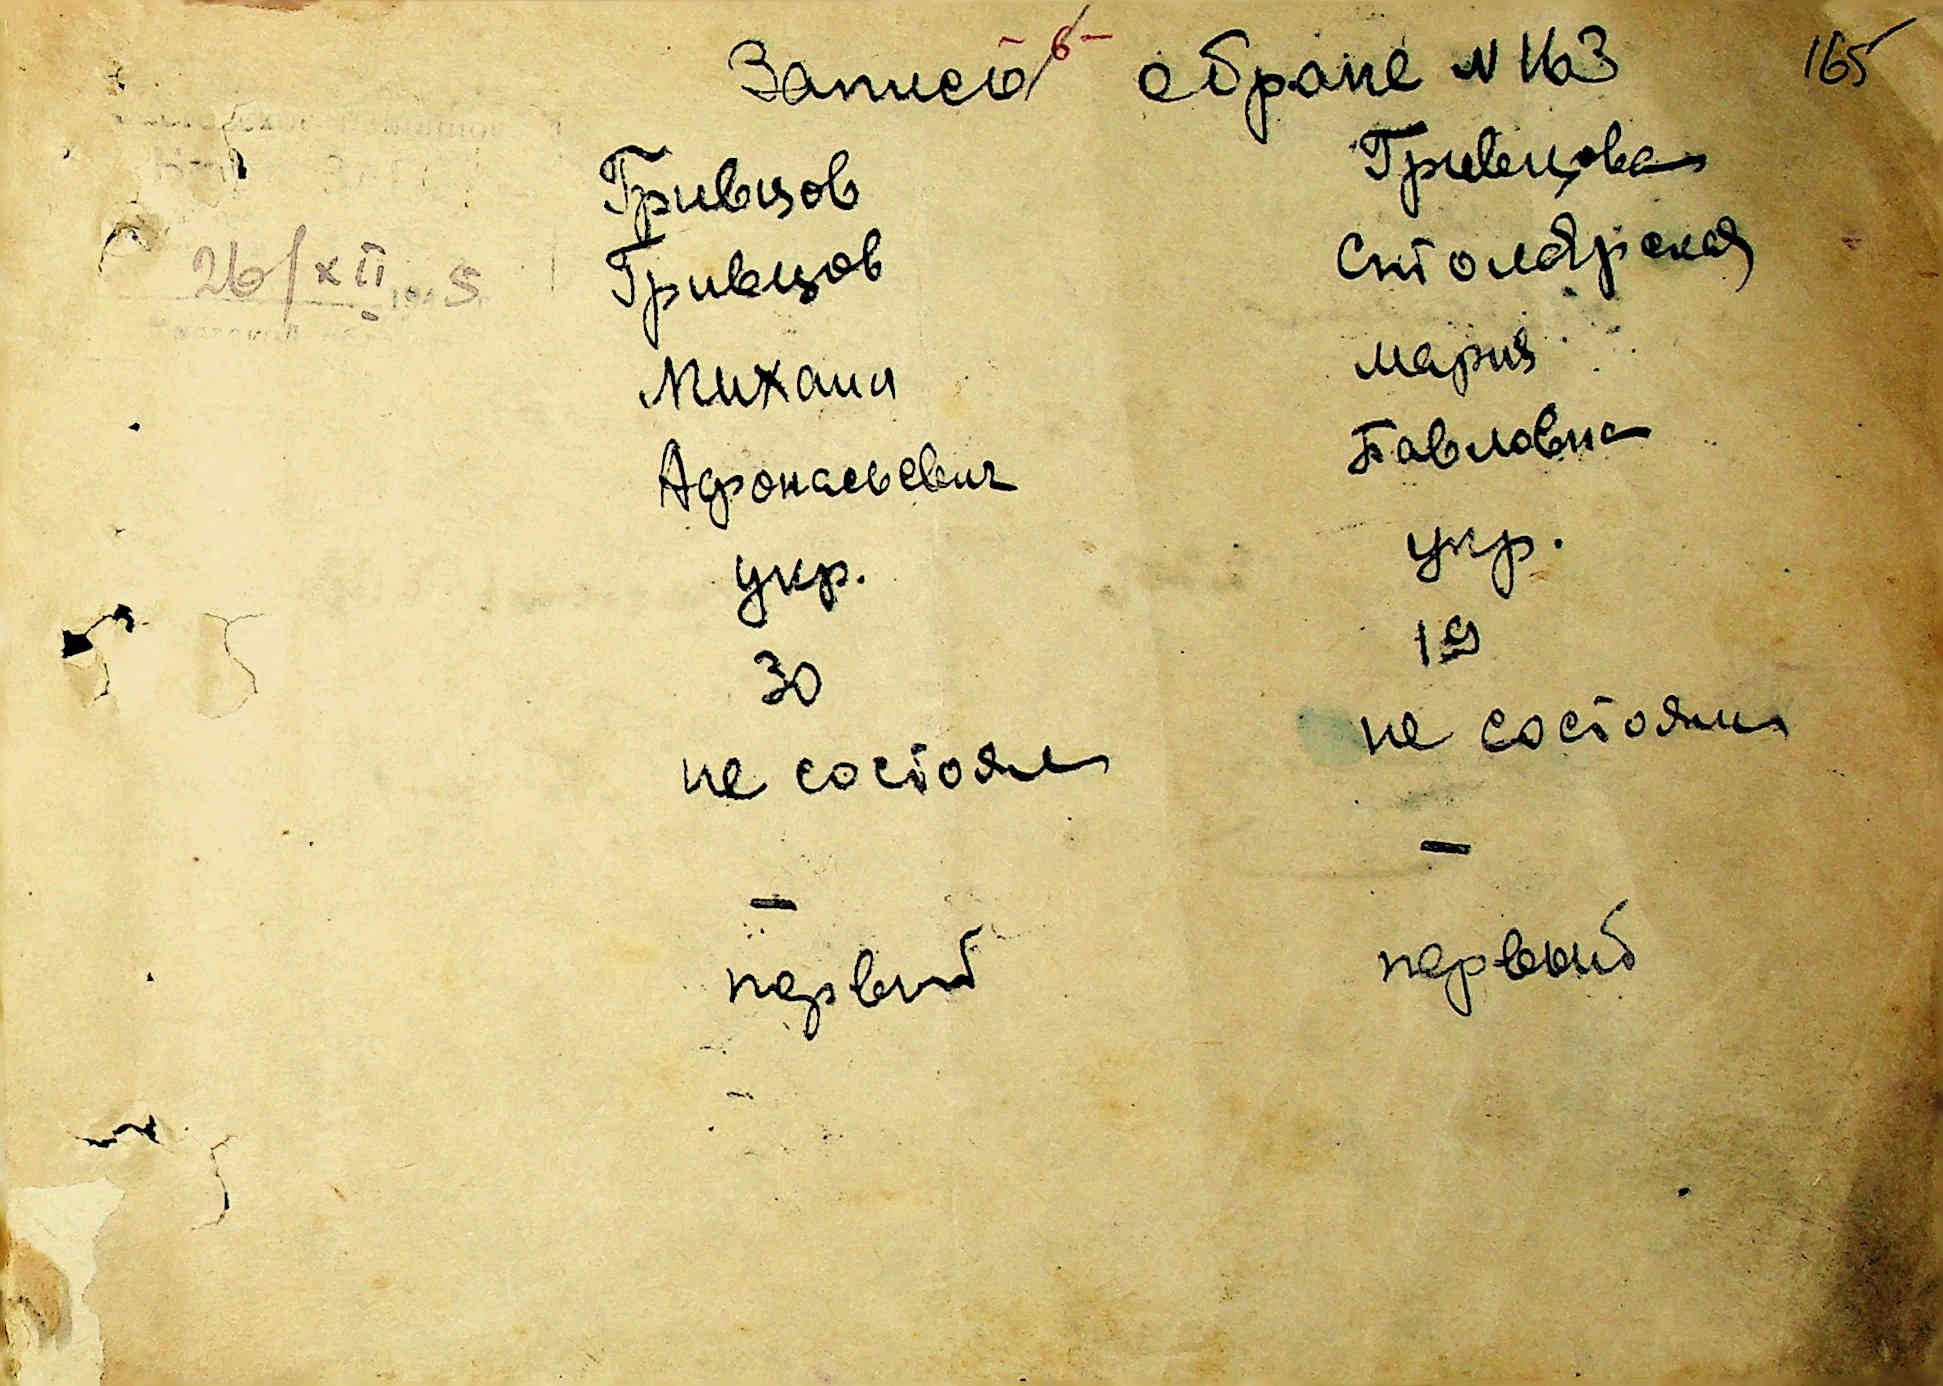 Запись о браке N 163 165
- 6 -
Гривцов Гривцова
Гривцов Столярская
26/XII 5
Михаил мария
Афонасьевич Павловна
укр. укр.
30 19
не состоял не состояла
- -
первый первый